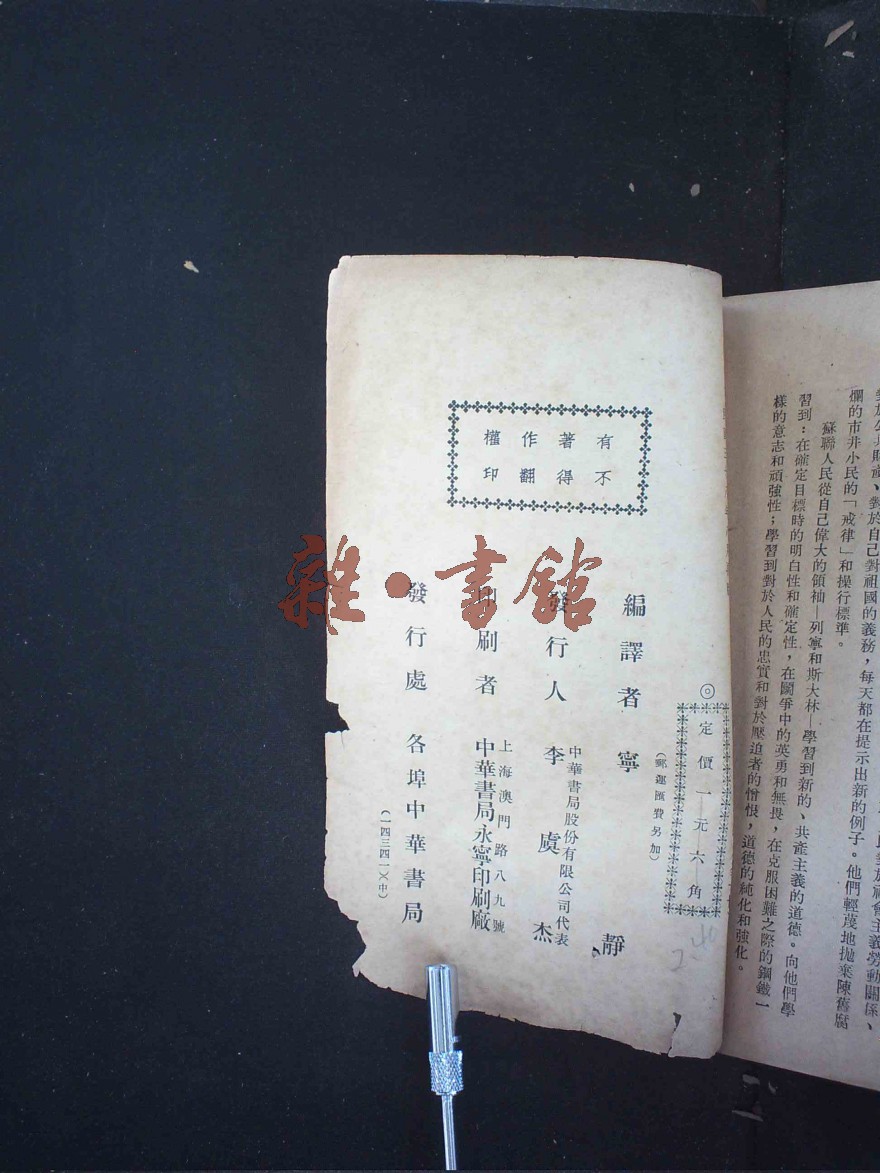 對於公共財產、對於自己對祖國的義務，每天都在提示出新的例子。他們輕蔑地拋棄陳舊腐
爛的市井小民的「戒律」和操行標準。
蘇聯人民從自己偉大的領袖—列寧和斯大林—學習到新的、共產主義的道德。向他們學
習到：在確定目標時的明白性和確定性，在鬭爭中的英勇和無畏，在克服困難之際的鋼鐵一
樣的意志和頑強性；學習到對於人民的忠實和對於壓迫者的憎恨，道德的純化和強化。
有著作權
不得翻印
◎定價一元六角
（郵運匯費另加）
編譯者 寧靜
發行人 李虞杰
中華書局股份有限公司代表
印刷者 中華書局永寧印刷廠
上海澳門路八九號
發行處 各埠中華書局
（一四三四一）（中）
雜·書館